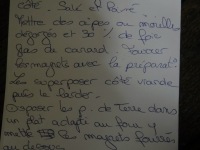 côté. Salé et Poivré
Mettre des cèpes ou morilles
dégorgés et 30 % de foie
gras de canard. Farcir
les magrets avec la préparat°
Les superposer côté viande
puis le larder.
Disposer les p. de Terre dans
un plat adapté au four y
mettre les magrets fourrés
au dessus